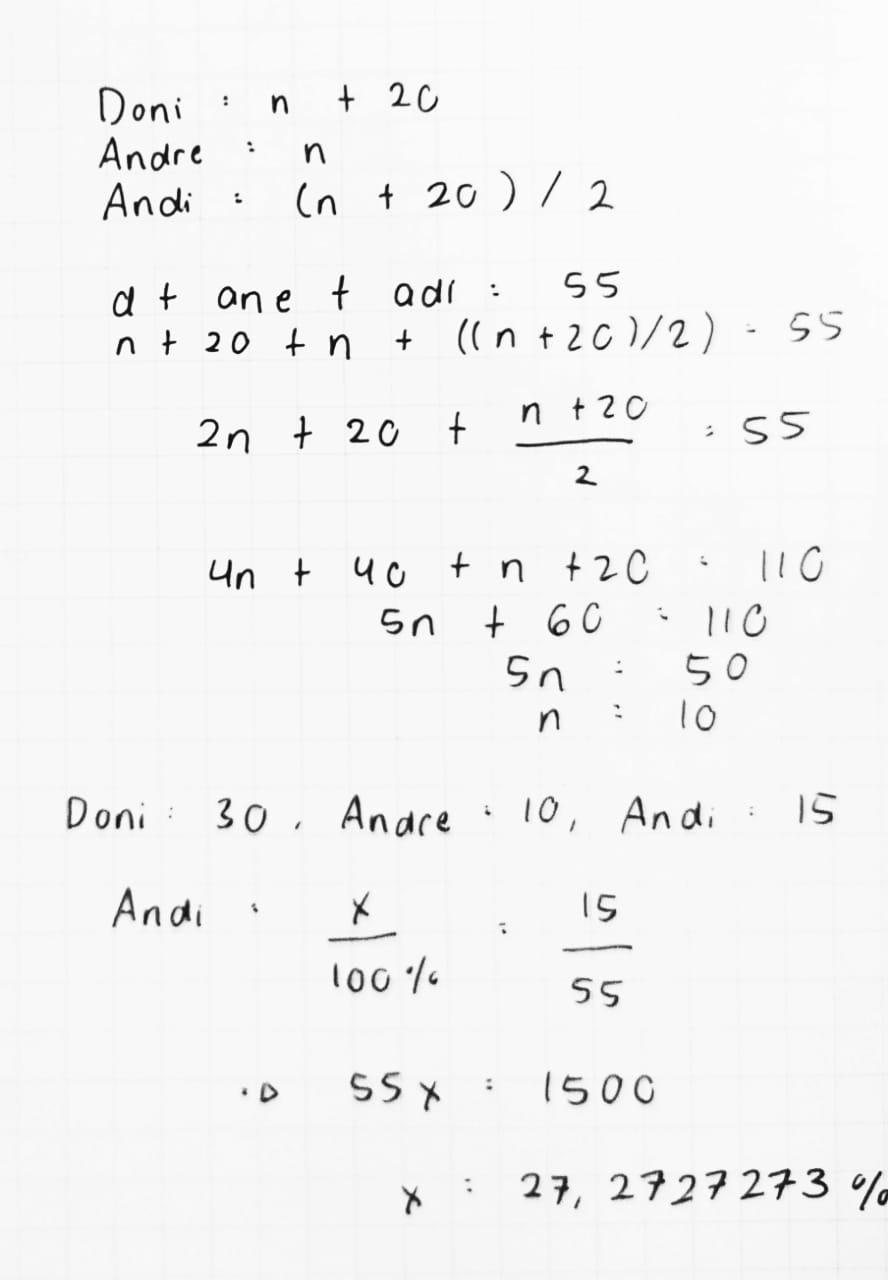 Doni : n + 20
Andre : n
Andi : (n + 20) / 2
d + ane + adi : 55
n + 20 + n + ((n + 20)/2) = 55
2n + 20 + n + 20 / 2 = 55
4n + 40 + n + 20 = 110
5n + 60 = 110
5n = 50
n = 10
Doni : 30, Andre : 10, Andi : 15
Andi : x / 100% = 15 / 55
55x = 1500
x = 27,2727273 %